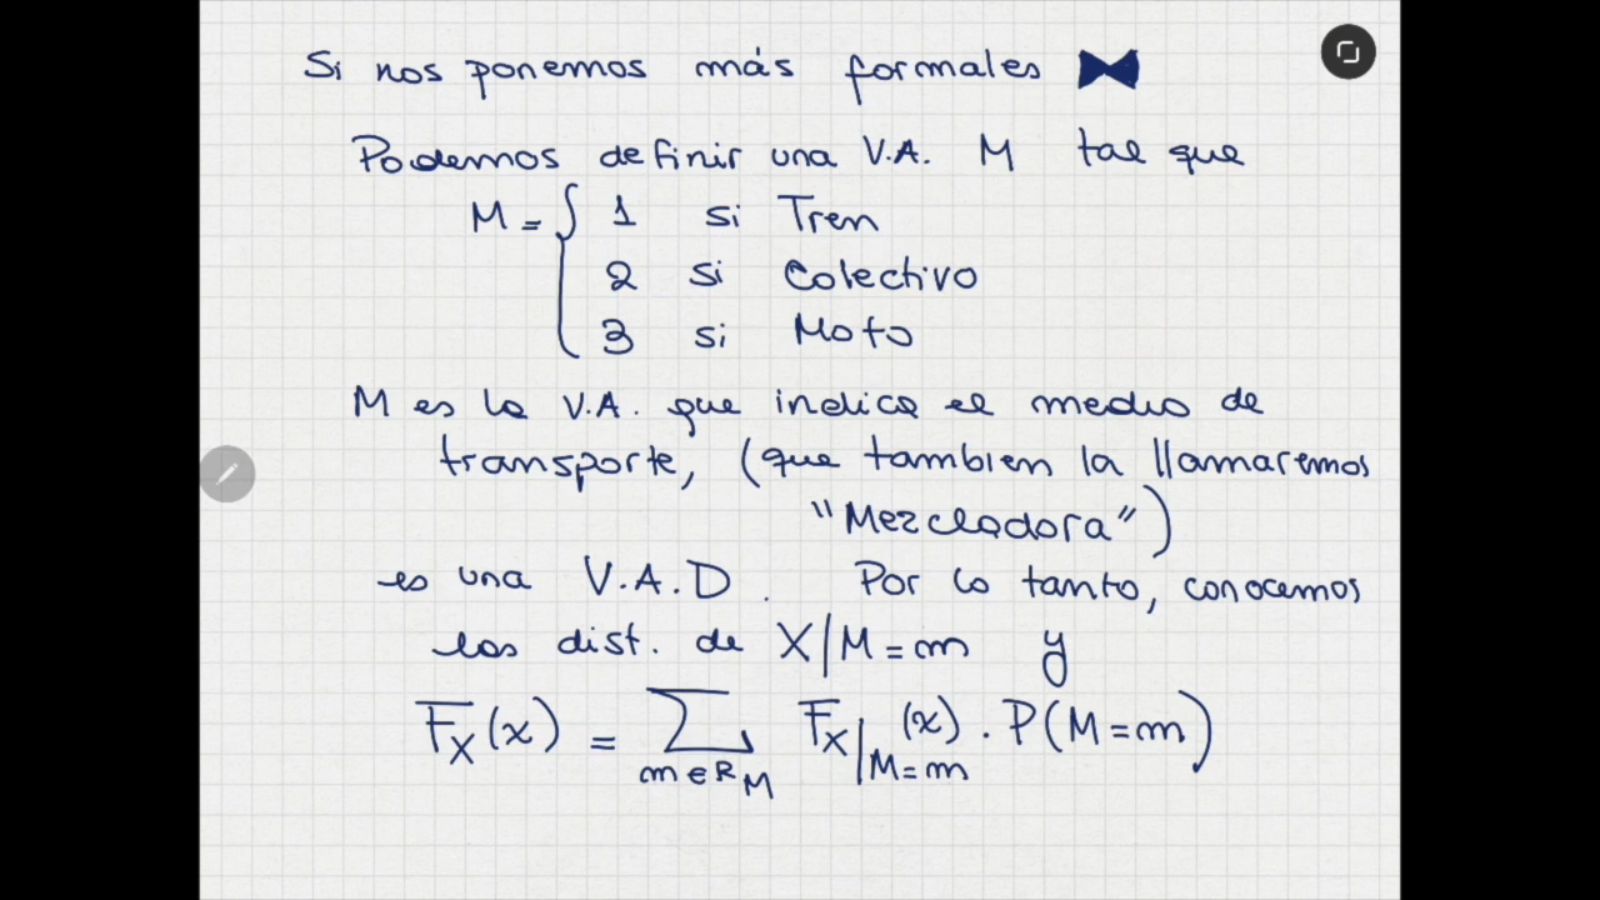 Si nos ponemos más formales
Podemos definir una V.A. M tal que
M = { 1 si Tren
2 si Colectivo
3 si Moto
M es la V.A. que indica el medio de
transporte, (que tambien la llamaremos
"Mezcladora")
es una V.A.D. Por lo tanto, conocemos
las dist. de X|M=m y
F_X(x) = ∑_{m∈R_M} F_{X|M=m}(x) . P(M=m)